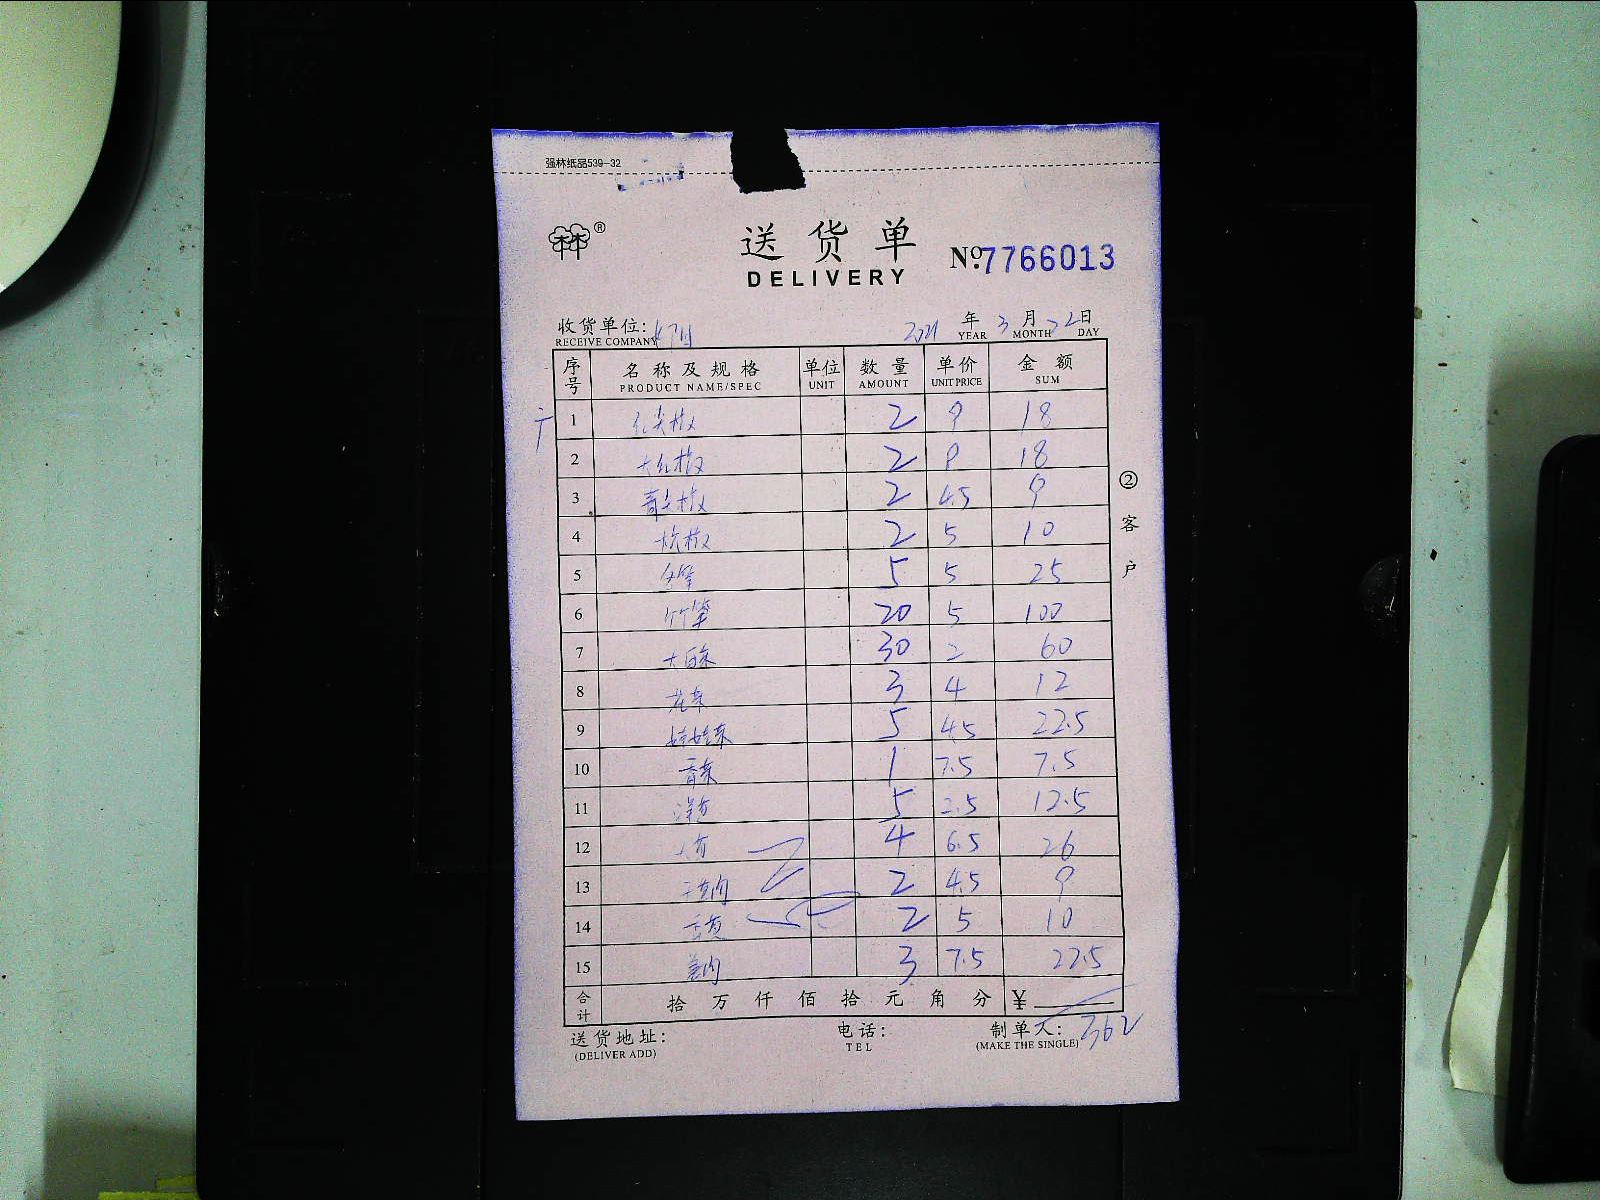 强林纸品539-32
林®
送货单
DELIVERY
No.7766013
收货单位:
RECEIVE COMPANY
2021 年 3 月 22 日
YEAR MONTH DAY
序号 名称及规格 单位 数量 单价 金额
PRODUCT NAME/SPEC UNIT AMOUNT UNIT PRICE SUM
1 红尖椒 2 9 18
2 大红椒 2 9 18
3 青尖椒 2 4.5 9
4 杭椒 2 5 10
5 冬笋 5 5 25
6 竹笋 20 5 100
7 大白菜 30 2 60
8 花菜 3 4 12
9 娃娃菜 5 4.5 22.5
10 香菜 1 7.5 7.5
11 洋芍 5 2.5 12.5
12 4 6.5 26
13 2 4.5 9
14 2 5 10
15 姜肉 3 7.5 22.5
合计 拾 万 仟 佰 拾 元 角 分 ¥
362
②客户
送货地址: 电话: 制单人:
(DELIVER ADD) TEL (MAKE THE SINGLE)